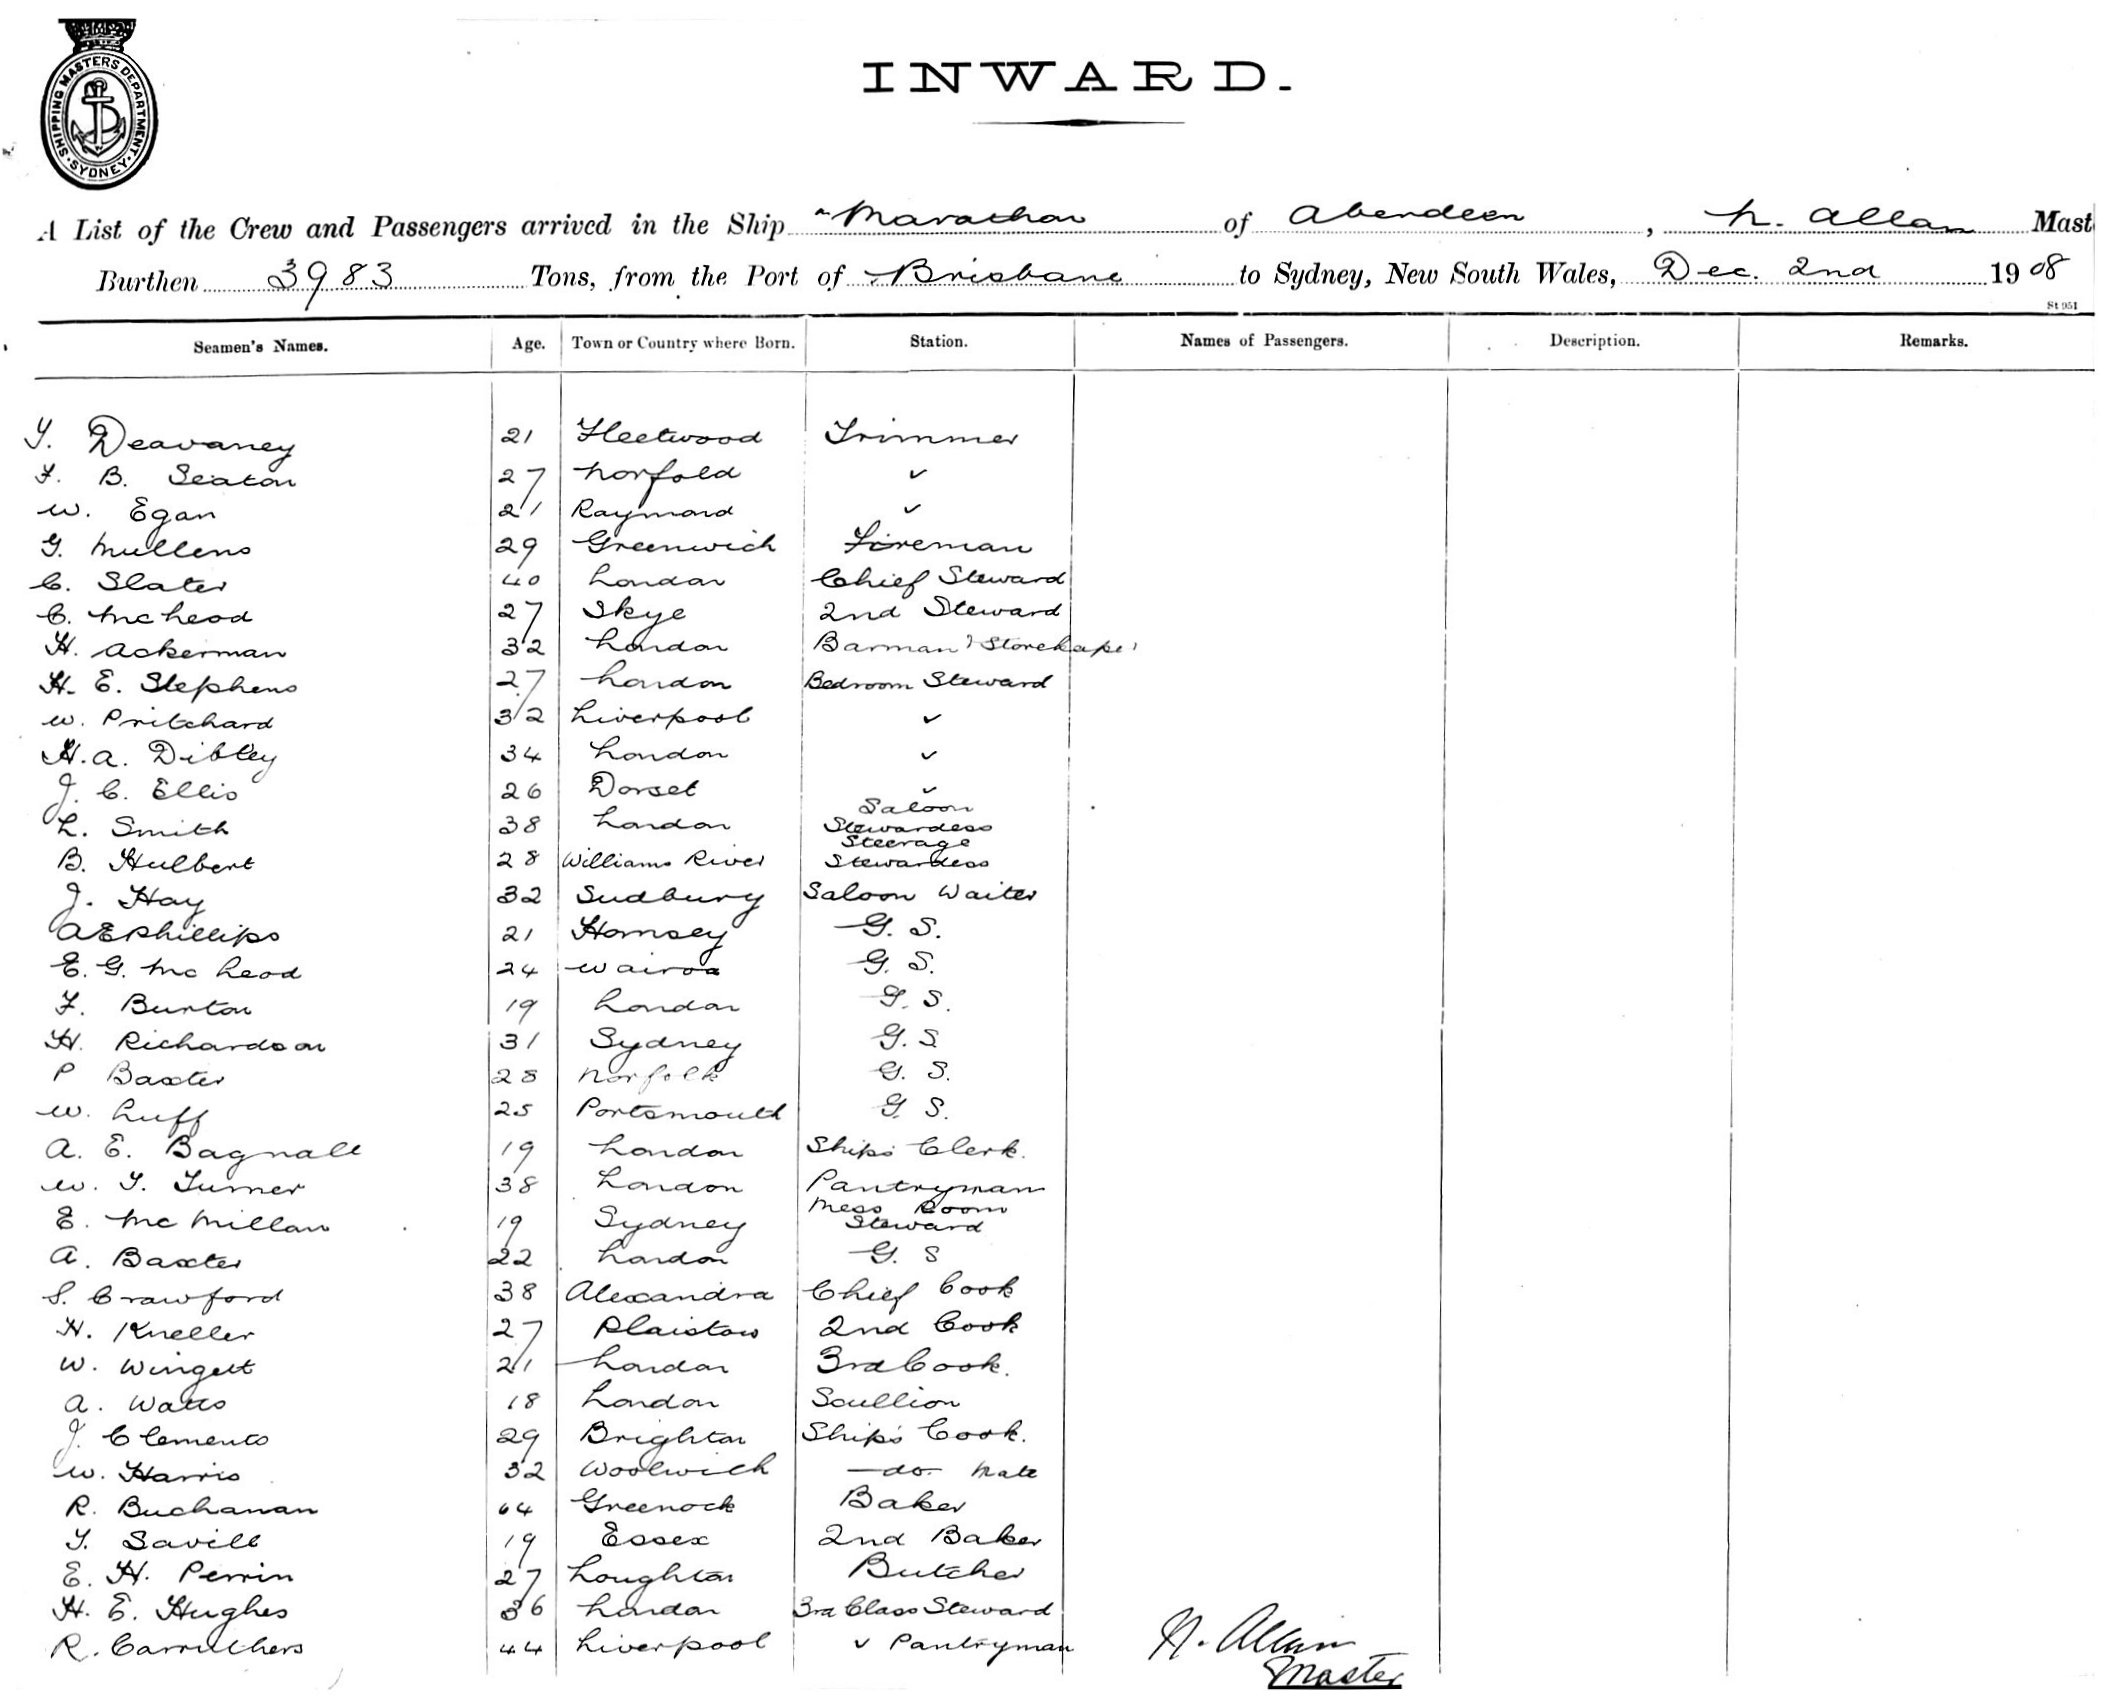 SHIPPING MASTERS DEPARTMENT · SYDNEY ·
INWARD.
A List of the Crew and Passengers arrived in the Ship "Marathon of Aberdeen, N. Allan Mast
Burthen 3983 Tons, from the Port of Brisbane to Sydney, New South Wales, Dec. 2nd 1908
St 951
Seamen's Names. Age. Town or Country where Born. Station. Names of Passengers. Description. Remarks.
T. Deavaney 21 Fleetwood Trimmer
F. B. Seaton 27 Norfold ✓
W. Egan 21 Raymond ✓
G. Mullens 29 Greenwich Fireman
C. Slater 40 London Chief Steward
C. McLeod 27 Skye 2nd Steward
H. Ackerman 32 London Barman & Storekape
H. E. Stephens 27 London Bedroom Steward
W. Pritchard 32 Liverpool ✓
H. A. Dibley 34 London ✓
J. C. Ellis 26 Dorset ✓
L. Smith 38 London Saloon Stewardess
B. Hulbert 28 Williams River Steerage Stewardess
J. Hay 32 Sudbury Saloon Waiter
A E Phillips 21 Hornsey G. S.
E. G. McLeod 24 Wairoa G. S.
F. Burton 19 London G. S.
H. Richardson 31 Sydney G. S
P Baxter 28 Norfolk G. S.
W. Luff 25 Portsmouth G. S.
A. E. Bagnall 19 London Ship's Clerk.
W. T. Turner 38 London Pantryman
E. McMillan 19 Sydney Mess Room Steward
A. Baxter 22 London G. S
S. Crawford 38 Alexandra Chief Cook
H. Kneller 27 Plaistow 2nd Cook
W. Wingett 21 London 3rd Cook.
A. Watts 18 London Scullion
J. Clements 29 Brighton Ship's Cook.
W. Harris 32 Woolwich -do- Mate
R. Buchanan 64 Greenock Baker
T. Savill 19 Essex 2nd Baker
E. H. Perrin 27 Loughton Butcher
H. E. Hughes 36 London 3rd Class Steward
R. Carruthers 44 Liverpool ✓ Pantryman
N. Allan
Master